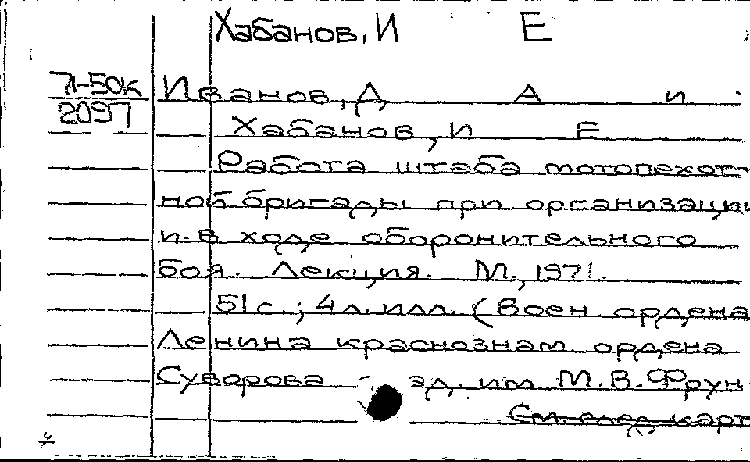 Хабанов, И Е
Л-50к
2097
Иванов, Д А и
Хабанов, И Е
Работа штаба мотопехот-
ной бригады при организации
и в ходе оборонительного
боя. Лекция. М., 1971.
51 с.; 4 л. илл. (Воен ордена
Ленина краснознам ордена
Суворова ад. им М.В. Фрун
См. след карт